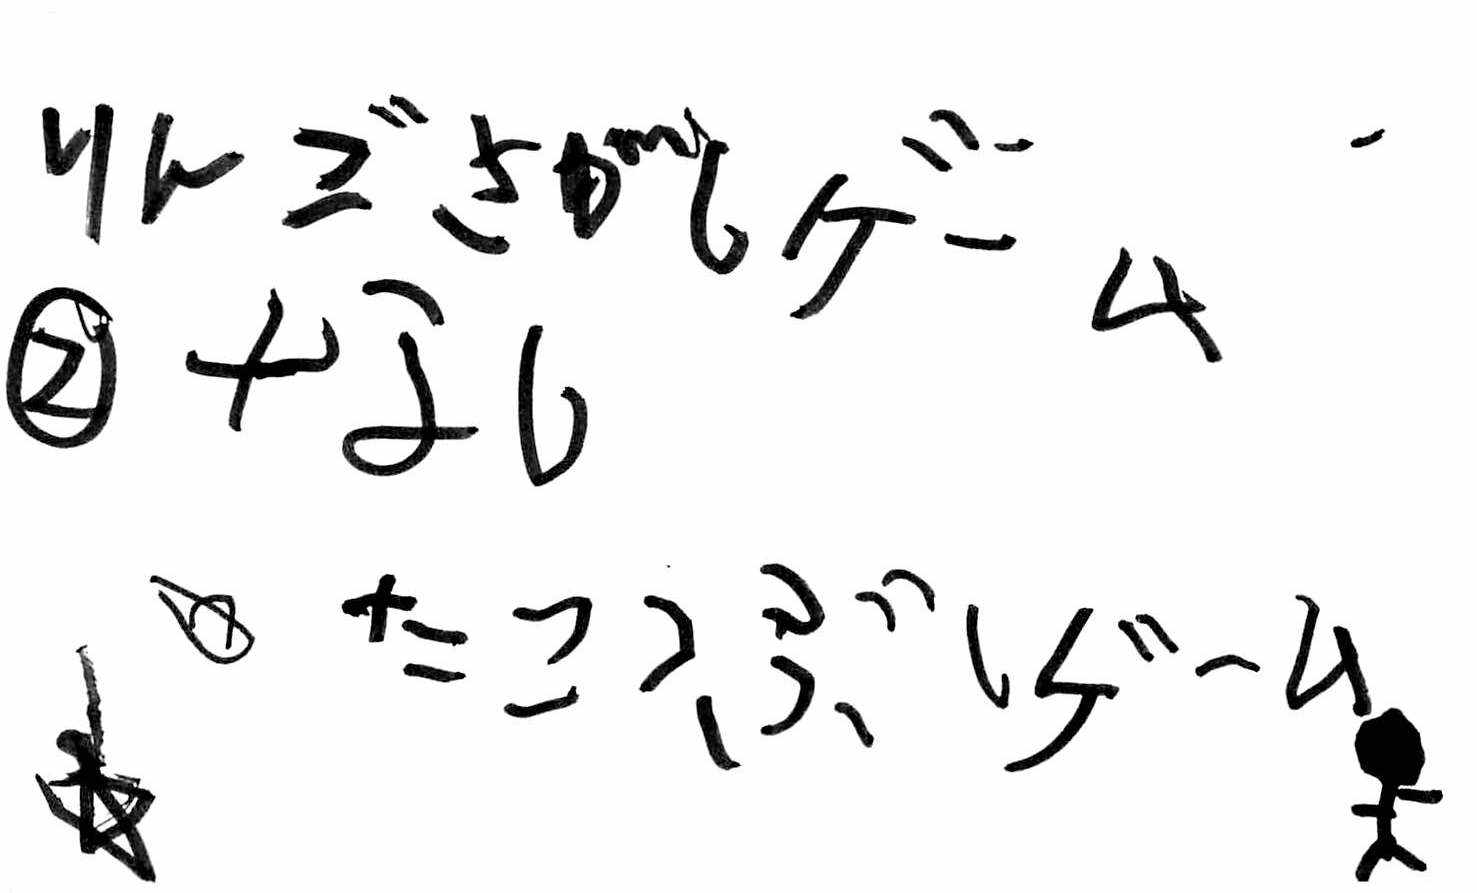 りんごさがしゲーム
② なし
たこつぶしゲーム